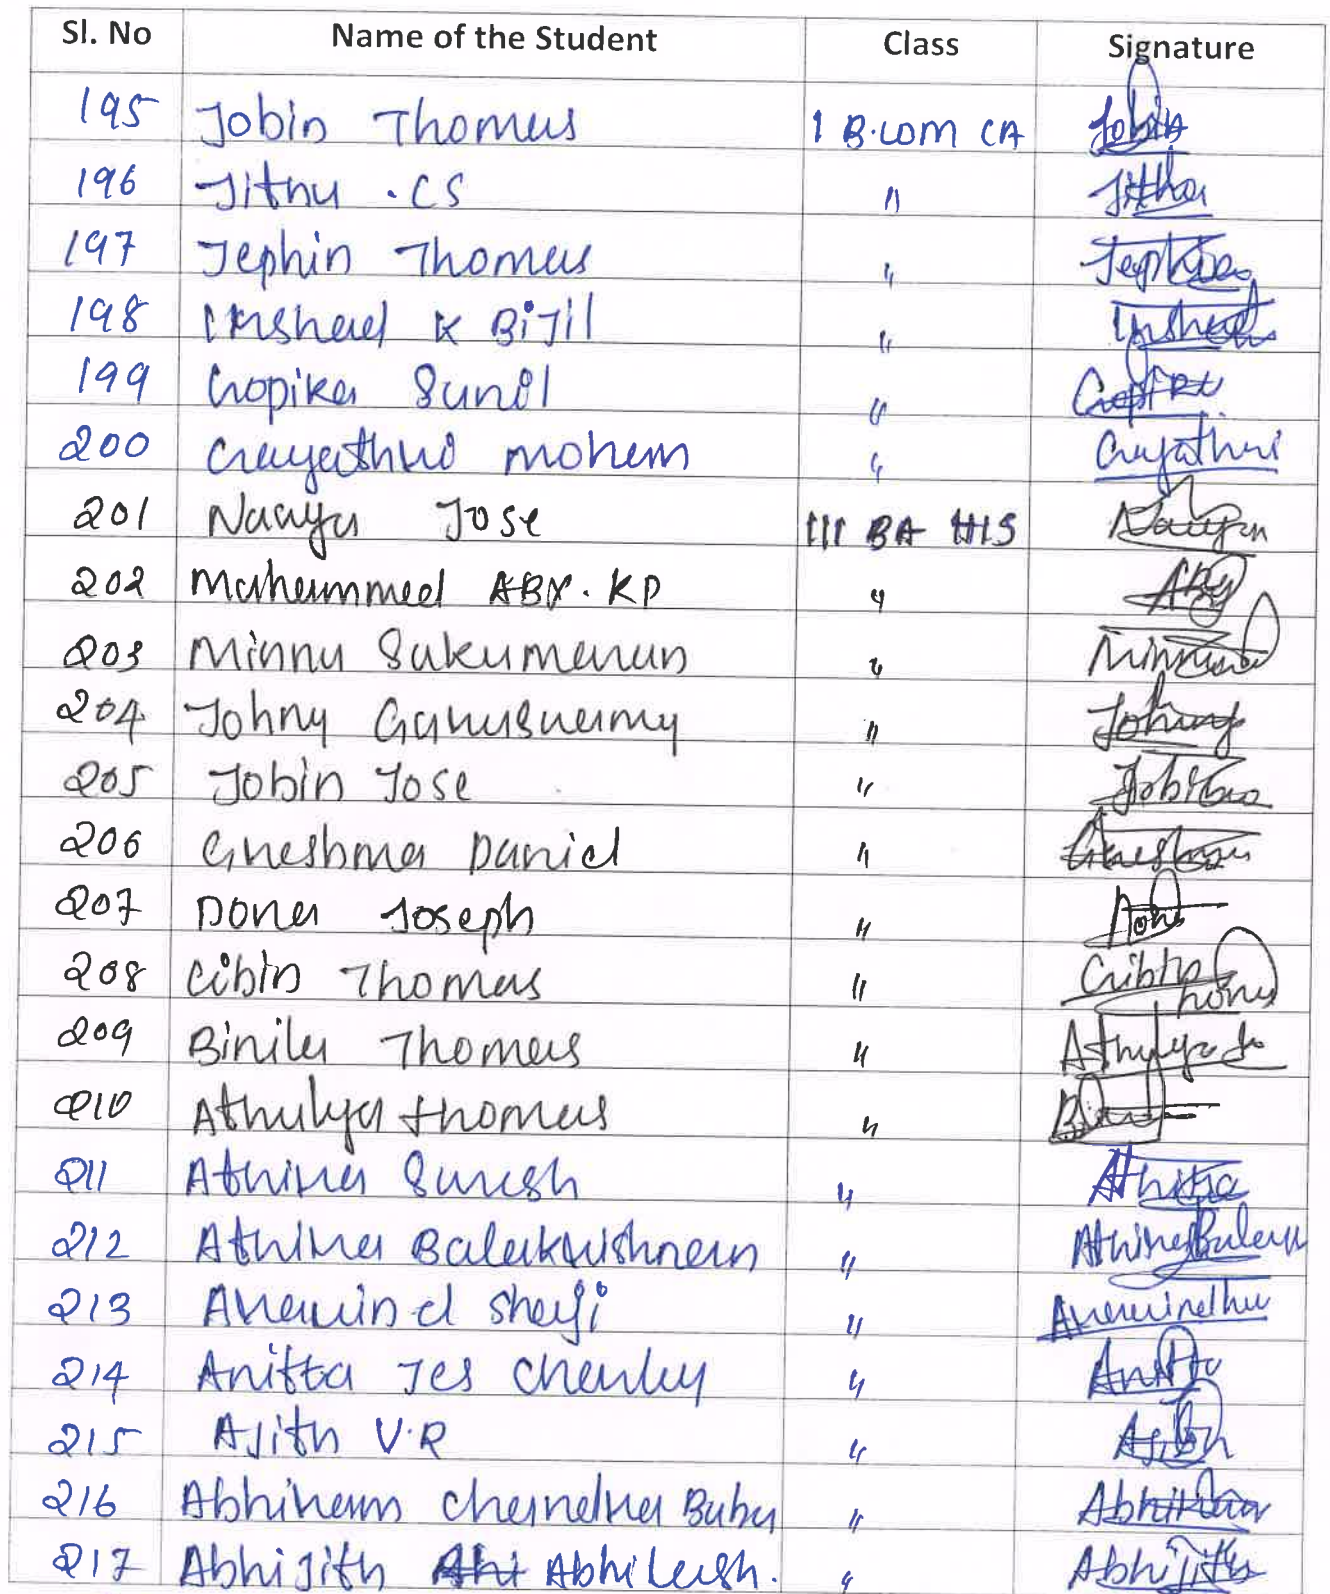 Sl. No Name of the Student Class Signature
195 Jobin Thomas I B.Com CA Jobin
196 Jithu .CS " Jithu
197 Jephin Thomas " Jephin
198 Irshad K Bijil " Irshad
199 Gopika Sunil " Gopika
200 Gayathri Mohan " Gayathri
201 Naaya Jose III BA HIS
202 Muhammed ABY. KP " Aby
203 Minnu Sukumaran "
204 Johny " Johny
205 Jobin Jose " Jobin
206 Greshma Daniel " Greshma
207 Dona Joseph " Dona
208 Cibin Thomas " Cibin Thomas
209 Binila Thomas " Athulya
210 Athulya Thomas "
211 Athira Suresh " Athira
212 Athira Balakrishnan "
213 Aravind Shaji "
214 Anitta Jes Charley " Anitta
215 Ajith V.R " Ajith
216 Abhiram Chandra Babu " Abhiram
217 Abhijith Abhilash. " Abhijith